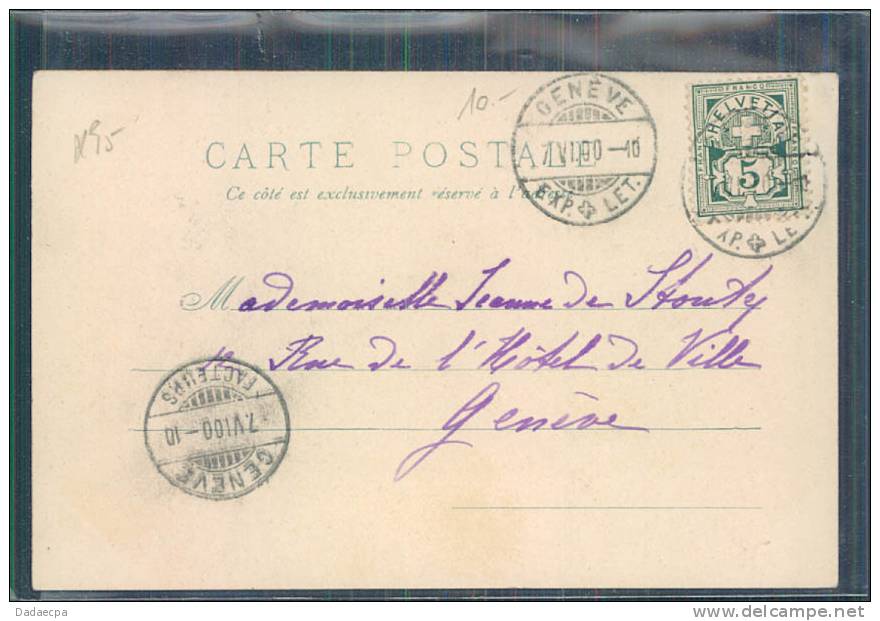 10.-
GENÈVE
7.VI.00-10
EXP. LET.
FRANCO
HELVETIA
5
XP. LE
CARTE POSTALE
Ce côté est exclusivement réservé à l'adresse
Mademoiselle Jeanne de Stoutz
Rue de l'Hôtel de Ville
Genève
FACTEURS
7.VI.00-10
GENÈVE
Dadaecpa
www.delcampe.net